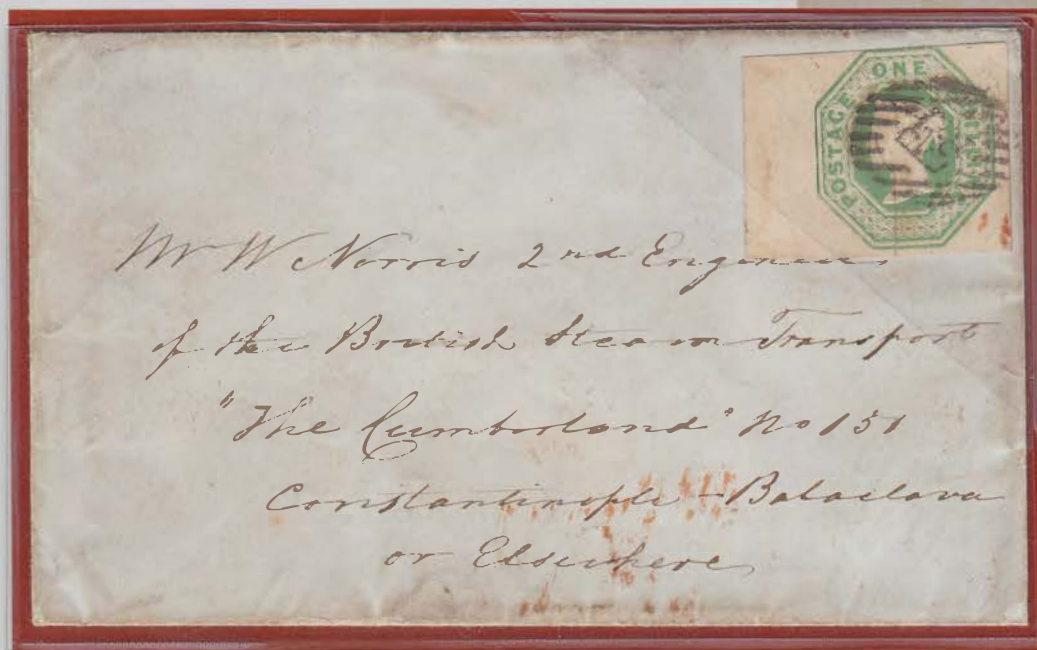 POSTAGE ONE SHILLING
Mr W Norris 2nd Engineer
of the British Steam Transport
"The Cumberland" No 151
Constantinople - Balaclava
or Elsewhere